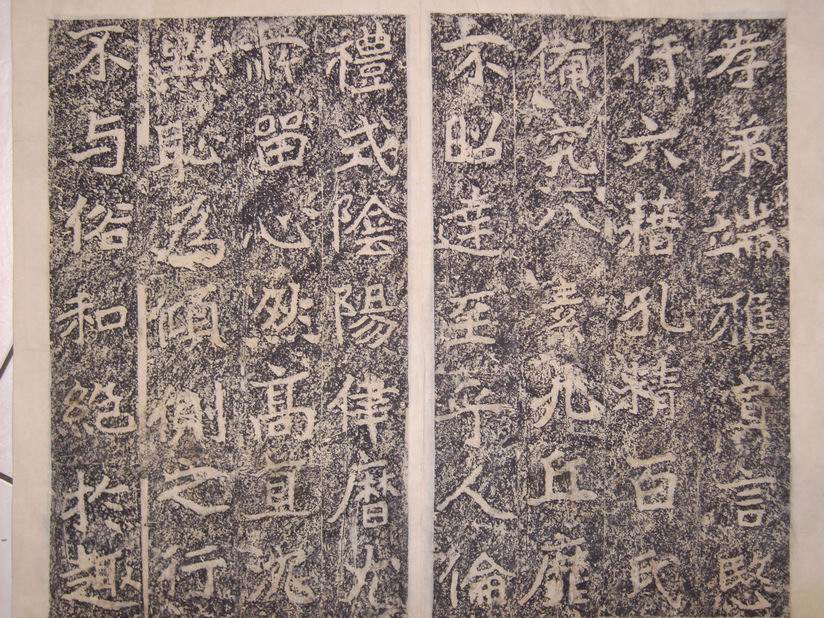 孝弟端雅寡言愍
行六藉孔精百氏
備究八素九丘靡
不昭達至乎人倫
禮式陰陽律曆尤
所留心然高直沉
默恥為傾側之行
不与俗和絕於趣